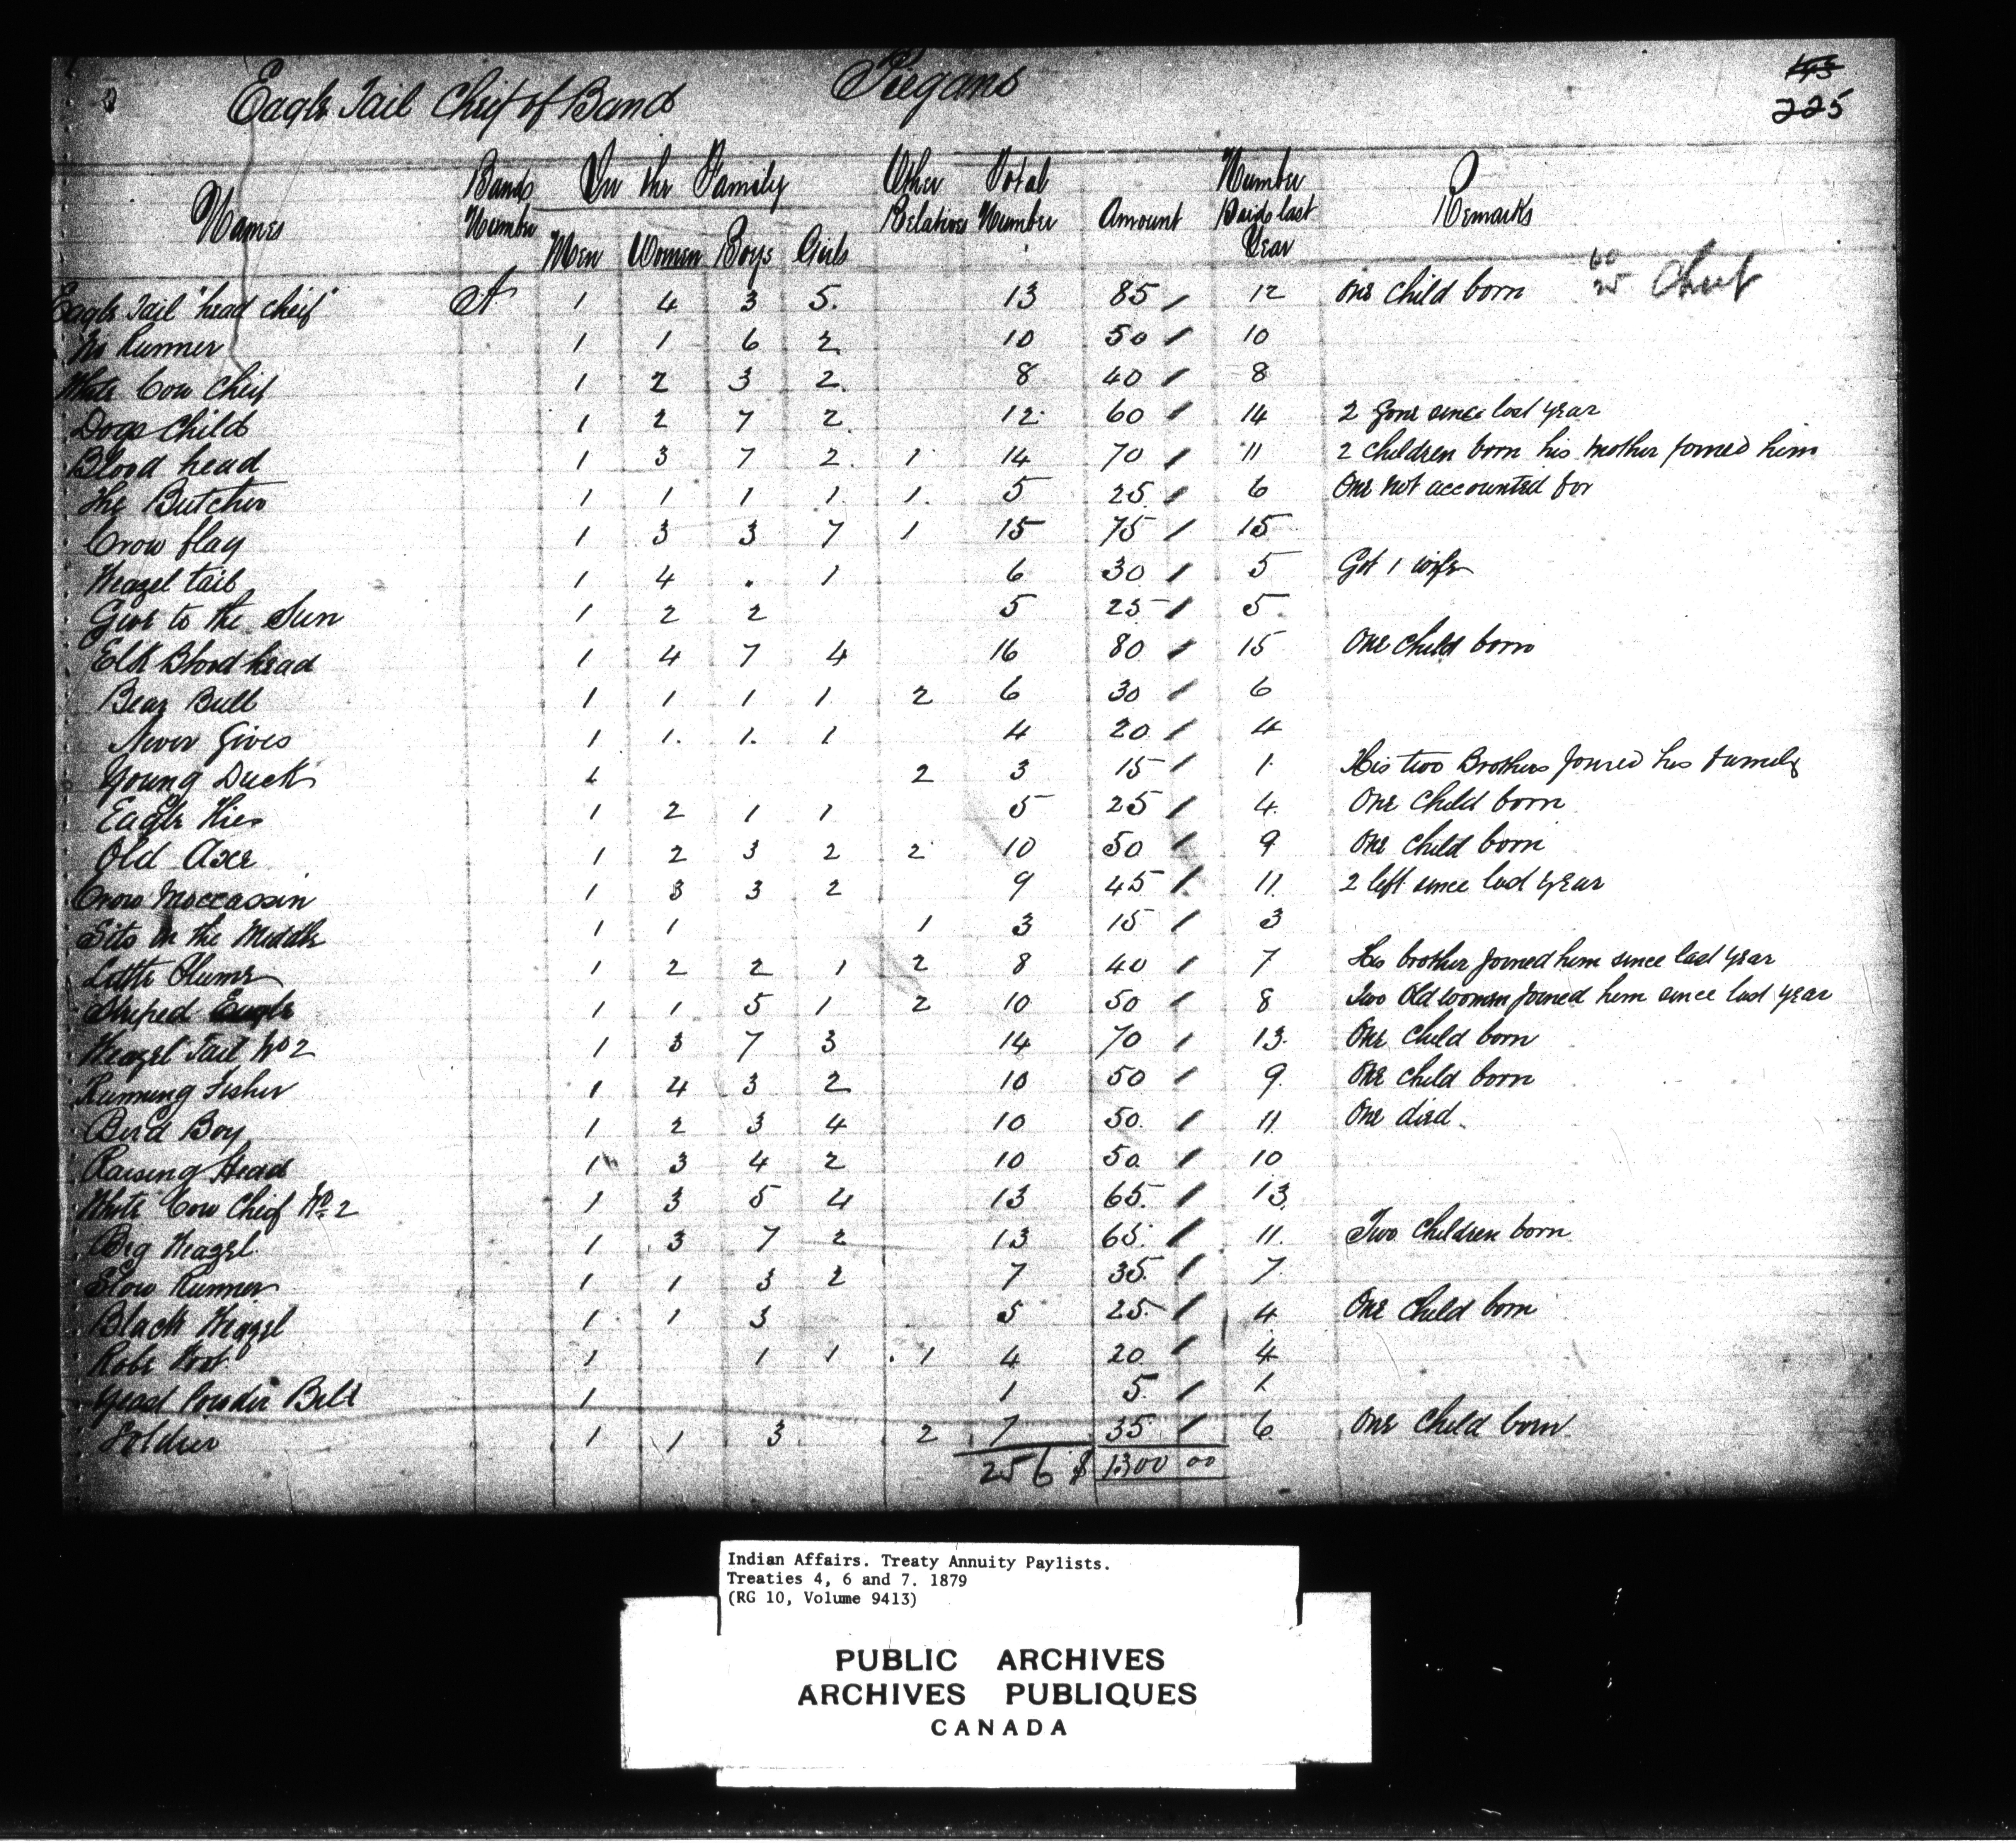 Eagle Tail Cheif of Band Piegans
225
Names Band Number In the Family Other Relatives Total Number Amount Number Paid last Year Remarks
Men Women Boys Girls
Eagle Tail "head cheif" A 1 4 3 5. 13 85 / 12 One child born Cheif
Runner 1 1 6 2 10 50 / 10
White Cow Cheif 1 2 3 2 8 40 / 8
Dogs Child 1 2 7 2 12 60 / 14 2 gone since last year
Blood head 1 3 7 2 1 14 70 / 11 2 children born his mother joined him
The Butcher 1 1 1 1 1 5 25 / 6 One not accounted for
Crow flag 1 3 3 7 1 15 75 / 15
Weazel tail 1 4 . 1 6 30 / 5 Got 1 wife
Give to the Sun 1 2 2 5 25 / 5
Elk Blood head 1 4 7 4 16 80 / 15 One child born
Bear Bull 1 1 1 1 2 6 30 / 6
Never Gives 1 1. 1. 1 4 20 / 4
Young Duck 1 2 3 15 / 1 His two Brothers joined his family
Eagle 1 2 1 1 5 25 / 4 One child born
Old Axe 1 2 3 2 2 10 50 / 9 One child born
Crow Moccassin 1 3 3 2 9 45 / 11 2 left since last year
Sits in the Middle 1 1 1 3 15 / 3
Little Plume 1 2 2 1 2 8 40 / 7 His brother joined him since last year
Striped Eagle 1 1 5 1 2 10 50 / 8 Two Old women joined him since last year
Weazel Tail No 2 1 3 7 3 14 70 / 13 One child born
Running Fisher 1 4 3 2 10 50 / 9 One child born
Bird Boy 1 2 3 4 10 50 / 11 One died
Raising Head 1 3 4 2 10 50 / 10
White Cow Cheif No 2 1 3 5 4 13 65 / 13
Big Weazel 1 3 7 2 13 65 / 11 Two Children born
Slow Runner 1 1 3 2 7 35 / 7
Black Weazel 1 1 3 5 25 / 4 One child born
Robe 1 1 1 1 4 20 / 4
Powder Belt 1 1 5 / 1
Soldier 1 1 3 2 7 35 / 6 One child born
256 $ 1300 00
Indian Affairs. Treaty Annuity Paylists.
Treaties 4, 6 and 7. 1879
(RG 10, Volume 9413)
PUBLIC ARCHIVES
ARCHIVES PUBLIQUES
CANADA